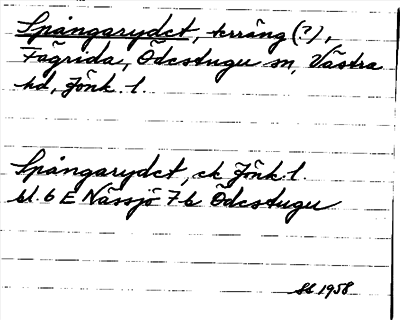 Spångarydet, terräng (?),
Fågrida, Ödestugu sn, Västra
hd, Jönk. l.
Spångarydet, ek Jönk. l.
bl. 6 E Nässjö 7 b Ödestugu
1958